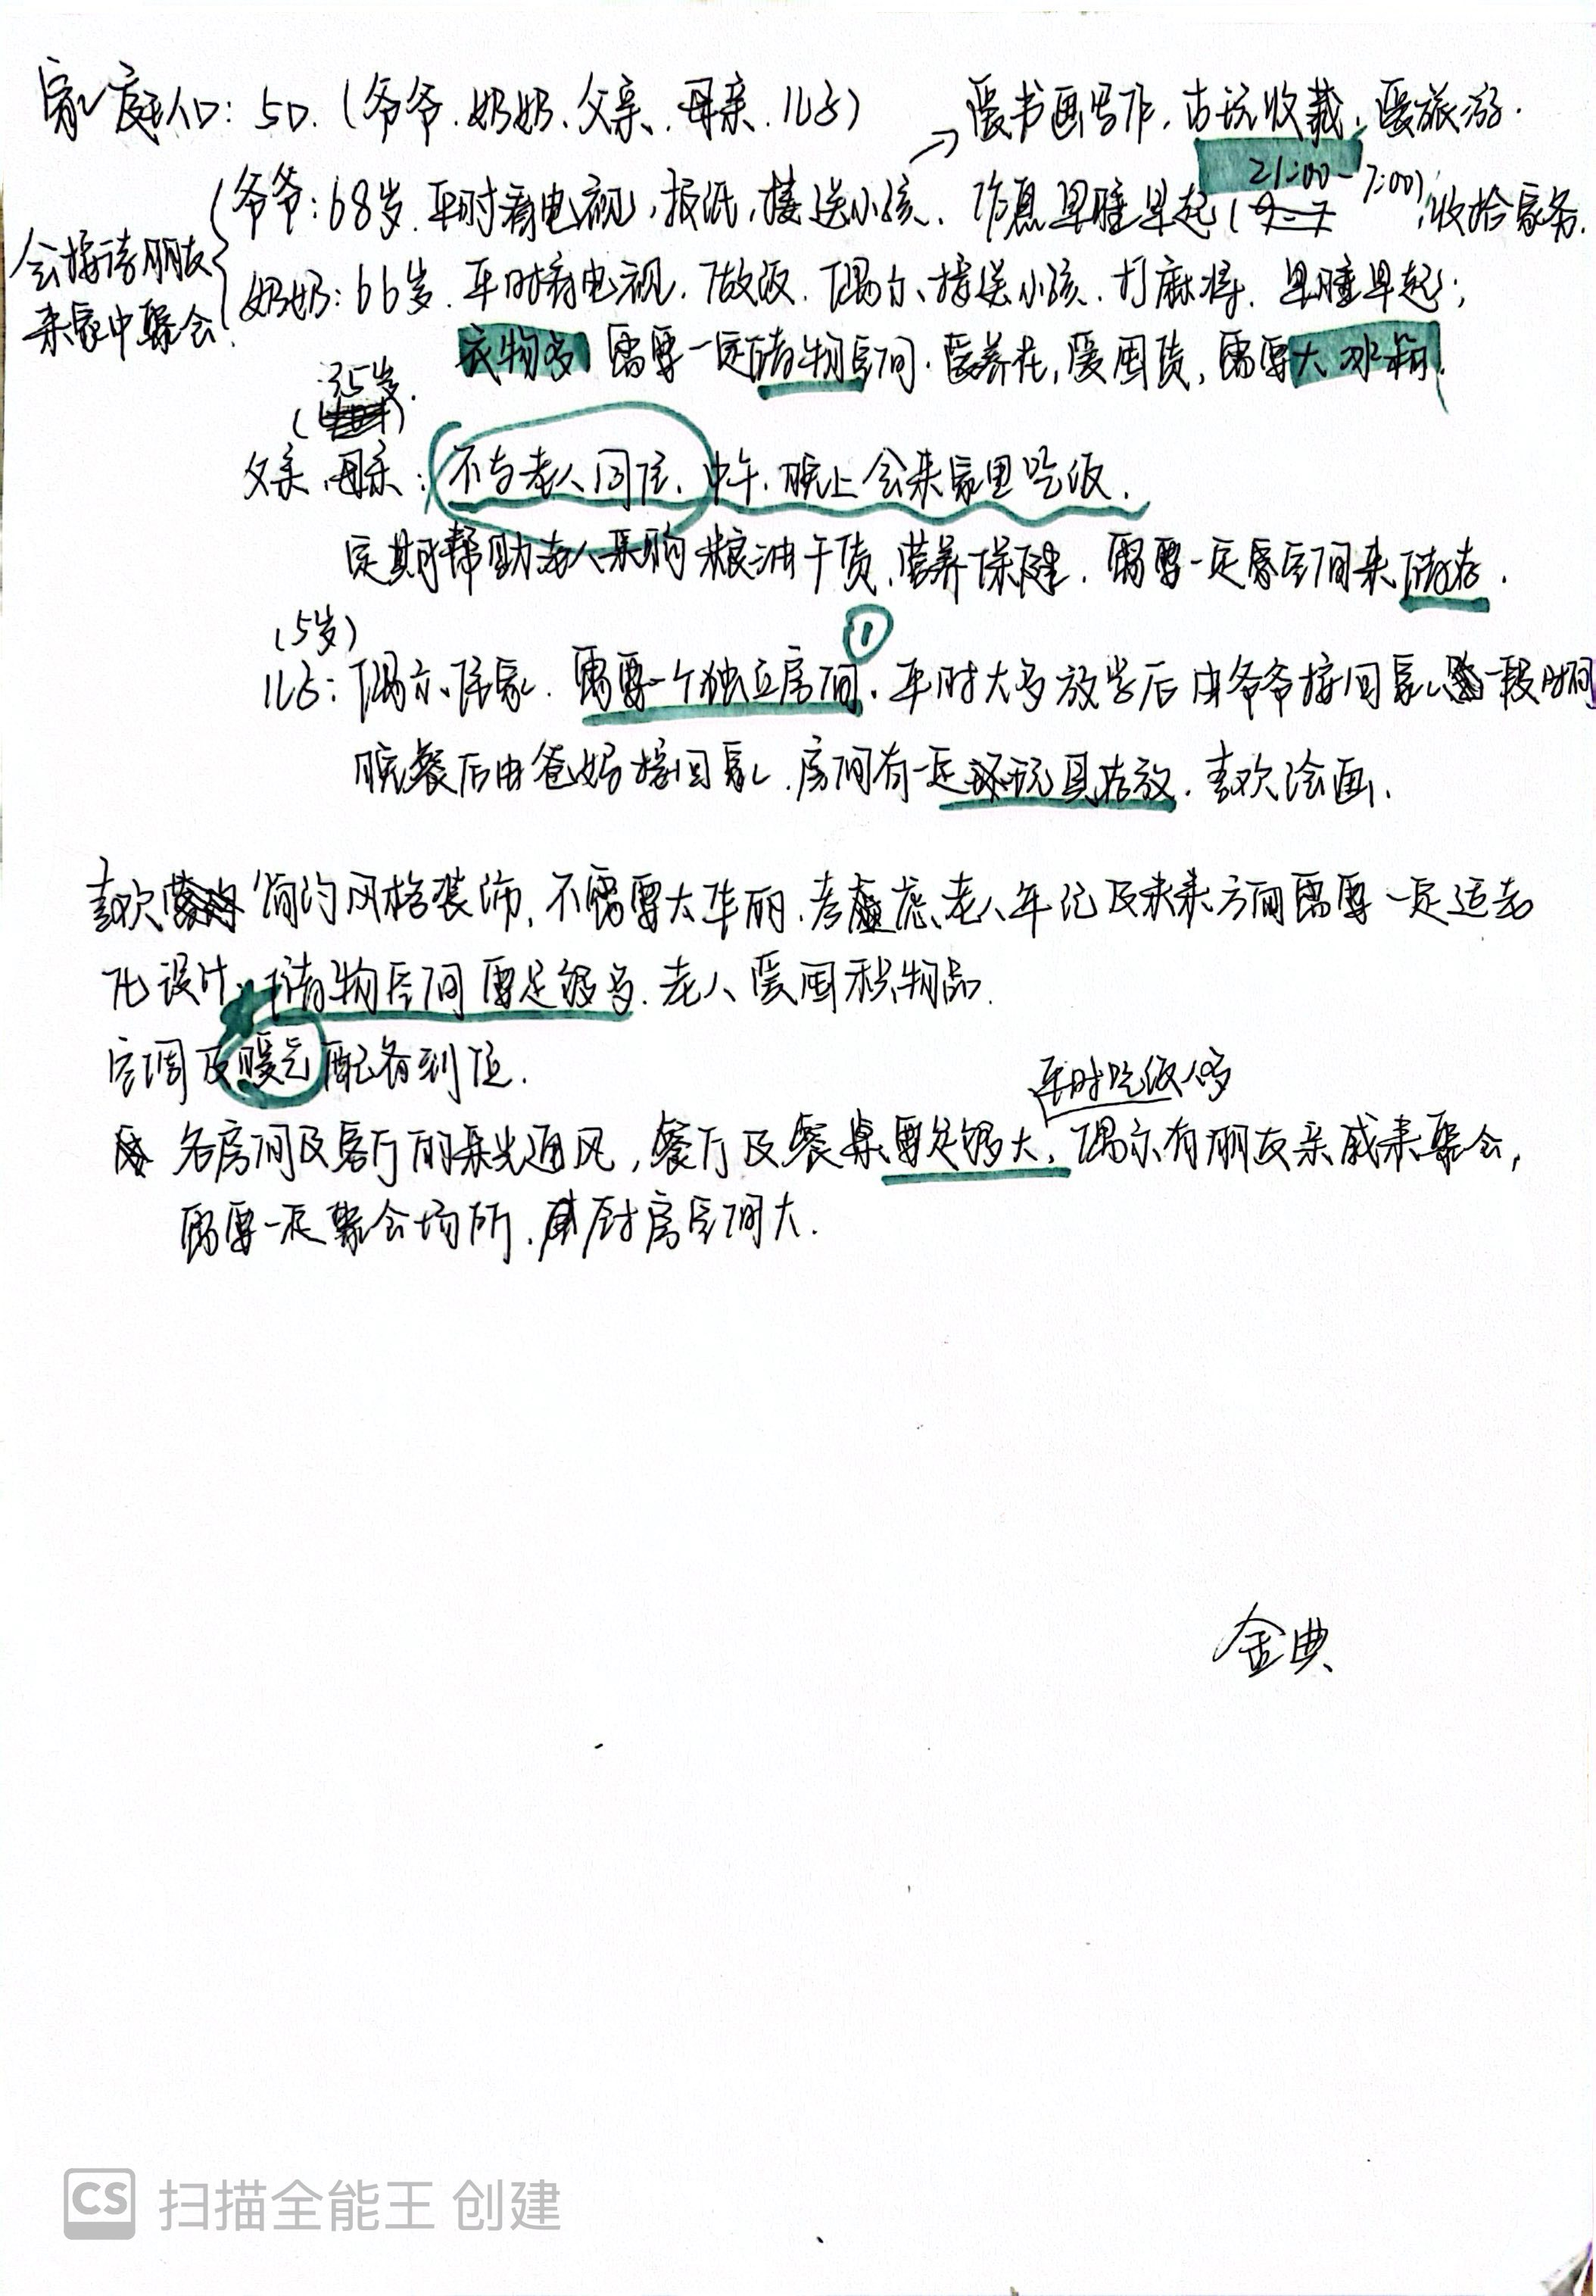 家庭人口：5口.（爷爷.奶奶、父亲、母亲.儿子）
爱书画写作，古玩收藏，爱旅游.
爷爷：68岁.平时看电视，报纸，接送小孩.作息早睡早起（21:00-7:00），收拾家务.
会接待朋友
来家中聚会.
奶奶：66岁.平时看电视.做饭.偶尔接送小孩.打麻将.早睡早起；
衣物多 需要一定储物空间.爱养花，爱囤货，需要大冰箱.
（35岁.）
父亲.母亲：不与老人同住.中午.晚上会来家里吃饭.
定期帮助老人采购粮油干货、营养保健.需要一定空间来储存.
（5岁）
①
儿子：偶尔住家.需要一个独立房间.平时大多放学后由爷爷接回家 一段时间
晚餐后由爸妈接回家.房间有一定玩具存放.喜欢绘画.
喜欢简约风格装饰，不需要太华丽.考虑老人年纪及未来方面需要一定适老
化设计，储物空间要足够多.老人爱囤积物品.
空调及暖气配备到位.
平时吃饭人多
各房间及客厅的采光通风，餐厅及餐桌要足够大，偶尔有朋友亲戚来聚会，
需要一定聚会场所.厨房空间大.
金典
CS 扫描全能王 创建